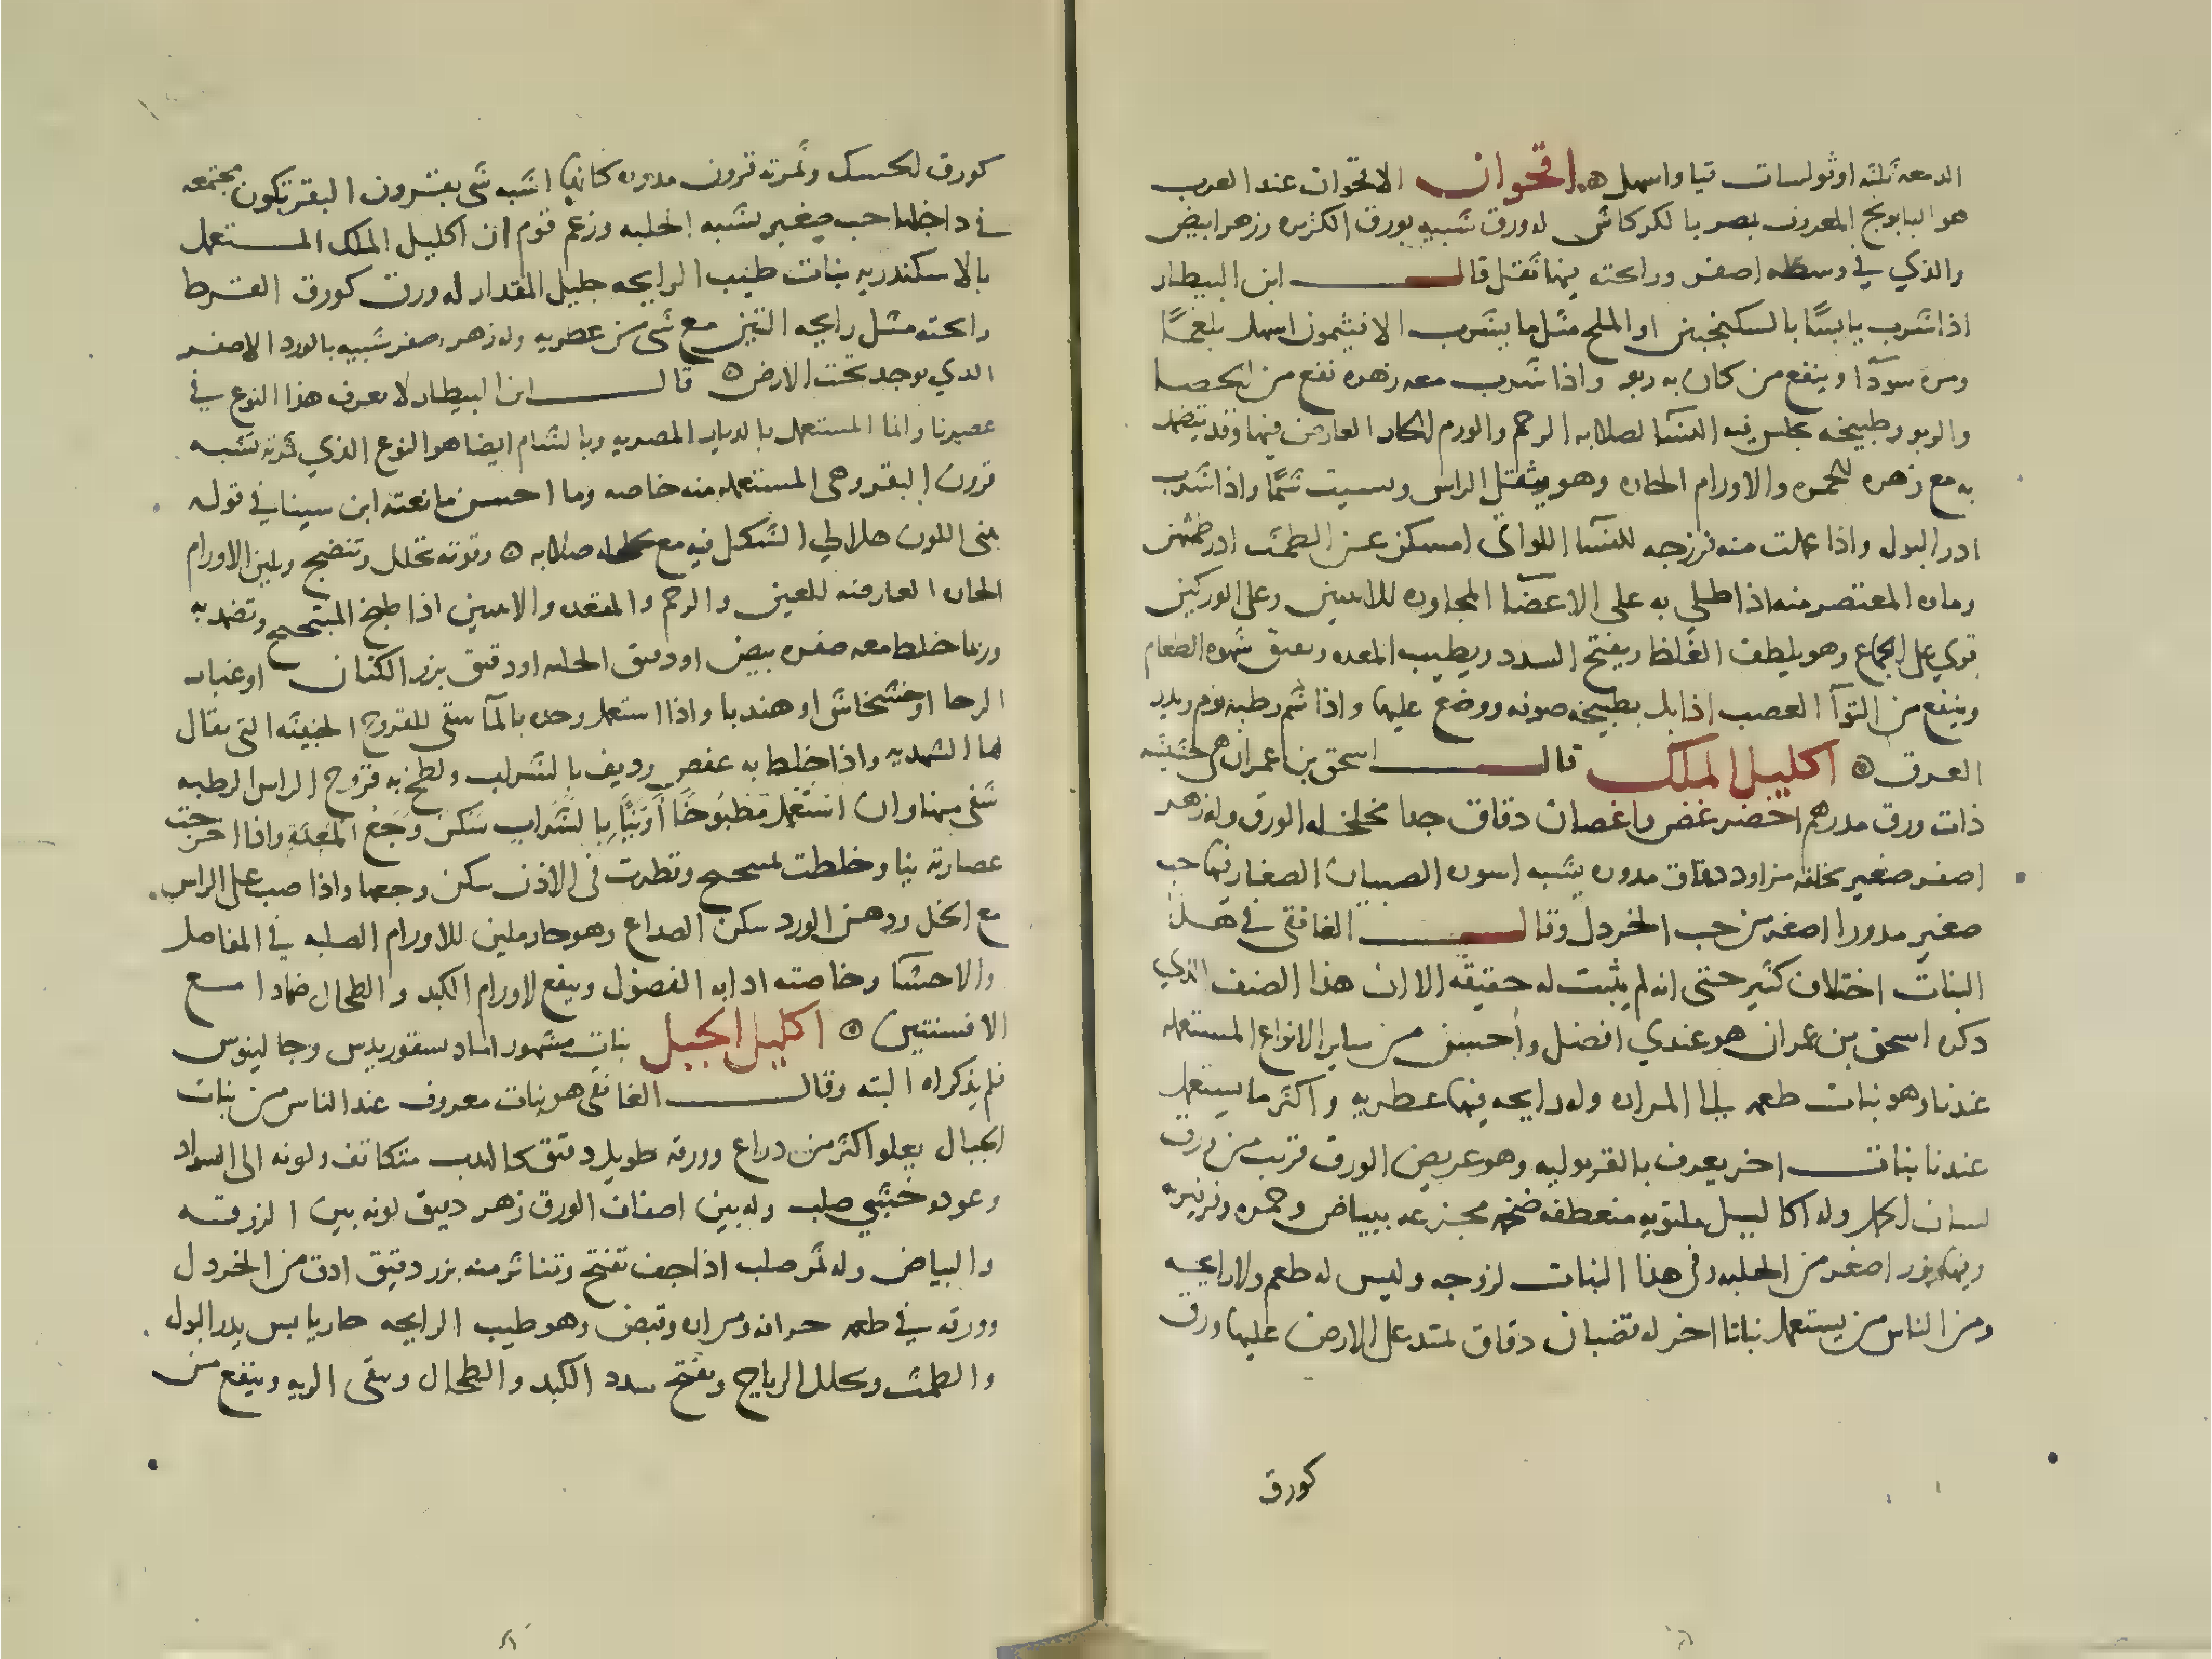 الدمعه ثلثه اوثولسات قيا واسهل ۞ اقحوان الاقحوان عند العرب
هو البابونج المعروف بمصر بالكركاش له ورق شبيه بورق الكزبره وزهر ابيض
والذي في وسطه اصفر ورائحته فيها ثقل قال ابن البيطار
اذا شرب يابسًا بالسكنجبين او الملح مثل ما يشرب الافيثمون اسهل بلغمًا
ومره سودآ وينفع من كان به ربو واذا شرب معه زهره نفع من الحصا
والربو وطبيخه يجلس فيه النسآ لصلابه الرحم والورم الحار العارض فيها وقد يتضمد
به مع زهره للحمره والاورام الحاره وهو يثقل الراس ويسبت شمًا واذا شرب
ادر البول واذا عملت منه فرزجه للنسآ اللواتى امسكن عن الطمث ادر طمثهن
وماه المعتصر منه اذا طلي به على الاعضآ المجاوره للانثيين وعلى الوركين
قوي على الجماع وهو يلطف الغلظ ويفتح السدد ويطيب المعده ويفتق شهوه الطعام
وينفع من التوآ العصب اذا بل بطبيخه صوفه ووضع عليها واذا شم رطبه نوم ويدر
العرق ۞ اكليل الملك قال اسحق بن عمران هي حشيشه
ذات ورق مدرهم اخضر غض واغصان دقاق جدا مخلخله الورق وله زهر
اصفر صغير يخلفه مزاود دقاق مدوره يشبه اسوره الصبيان الصغار فيها حب
صغير مدورا اصغر من حب الخردل وقال الغافقى في هذا
النبات اختلاف كثير حتى انه لم يثبت له حقيقه الا ان هذا الصنف الذي
دكره اسحق بن عمران هو عندي افضل واحسن من ساير الانواع المستعمله
عندنا وهو نبات طعمه الى المراره وله رايحه فيها عطريه واكثر ما يستعمل
عندنا نبات اخر يعرف بالقربوليه وهو عريض الورق قريب من ورق
لسان الحمل وله اكاليل ملتويه منعطفه ضخمه مجزعه ببياض وحمره وفرفيريه
وفيها بزر اصغر من الحلبه وفى هذا النبات لزوجه وليس له طعم ولا رايحه
ومن الناس من يستعمل نباتا اخر له قضبان دقاق تمتد على الارض عليها ورق
كورق
كورق الحسك وثمرته قرون مدوره كانها اشبه شى بقرون البقر تكون مجتمعه
في داخلها حب صغير يشبه الحلبه وزعم قوم ان اكليل الملك المستعمل
بالاسكندريه نبات طيب الرايحه جليل المقدار له ورق كورق القرط
رائحته مثل رايحه التين مع شى من عطريه وله زهر اصفر شبيه بالورد الاصفر
الدي يوجد تحت الارض ۞ قال ابن البيطار لا يعرف هذا النوع في
عصرنا وانما المستعمل بالديار المصريه وبالشام ايضا هو النوع الذي ثمرته تشبه
قرون البقر وهى المستعمله منه خاصه وما احسن ما نعته ابن سينا في قوله
تبنى اللون هلالي الشكل فيه مع صلابه ۞ وقوته تحلل وتنضج وتلين الاورام
الحاره العارضه للعين والرحم والمقعده والانثيين اذا طبخ المبتحتج وتضمد به
وربما خلط معه صفره بيض او دقيق الحلبه او دقيق بزر الكتان او غبار
الرحا او خشخاش او هندبا واذا استعمل وحده بالمآ شفى للقروح الخبيثه التى يقال
لها الشهديه واذا خلط به عفص وديف بالشراب ولطخ به قروح الراس الرطبه
شفى منها وان استُعمل مَطبُوخًا اَو نيًّا بالشراب سَكن وَجَع المَعدَةِ واذا اخرجت
عصارته نيا وخلطت لمبختج وقطرت فى الاذن سكن وجعها واذا صب على الراس
مع الخل ودهن الورد سكن الصداع وهو حار ملين للاورام الصلبه في المفاصل
والاحشآ وخاصته ادابه الفضول وينفع لاورام الكبد والطحال ضمادا مع
الافسنتين ۞ اكليل الجبل نبات مشهور اما ديسقوريدس وجالينوس
فلم يذكراه البته وقال الغافقى هو نبات معروف عند الناس من نبات
الجبال يعلو اكثر من دراع وورقه طويل دقيق كالهدب متكاثف ولونه الى السواد
وعوده خشبي صلب وله بين اضعاف الورق زهر دقيق لونه بين الزرقه
والبياض وله ثمر صلب اذا جف تفتح وتناثر منه بزر دقيق ادق من الخردل
وورقه في طعمه حرافه ومراره وقبض وهو طيب الرايحه حار يابس يدر البول
والطمث ويحلل الرياح ويفتح سدد الكبد والطحال وينقى الريه وينفع من